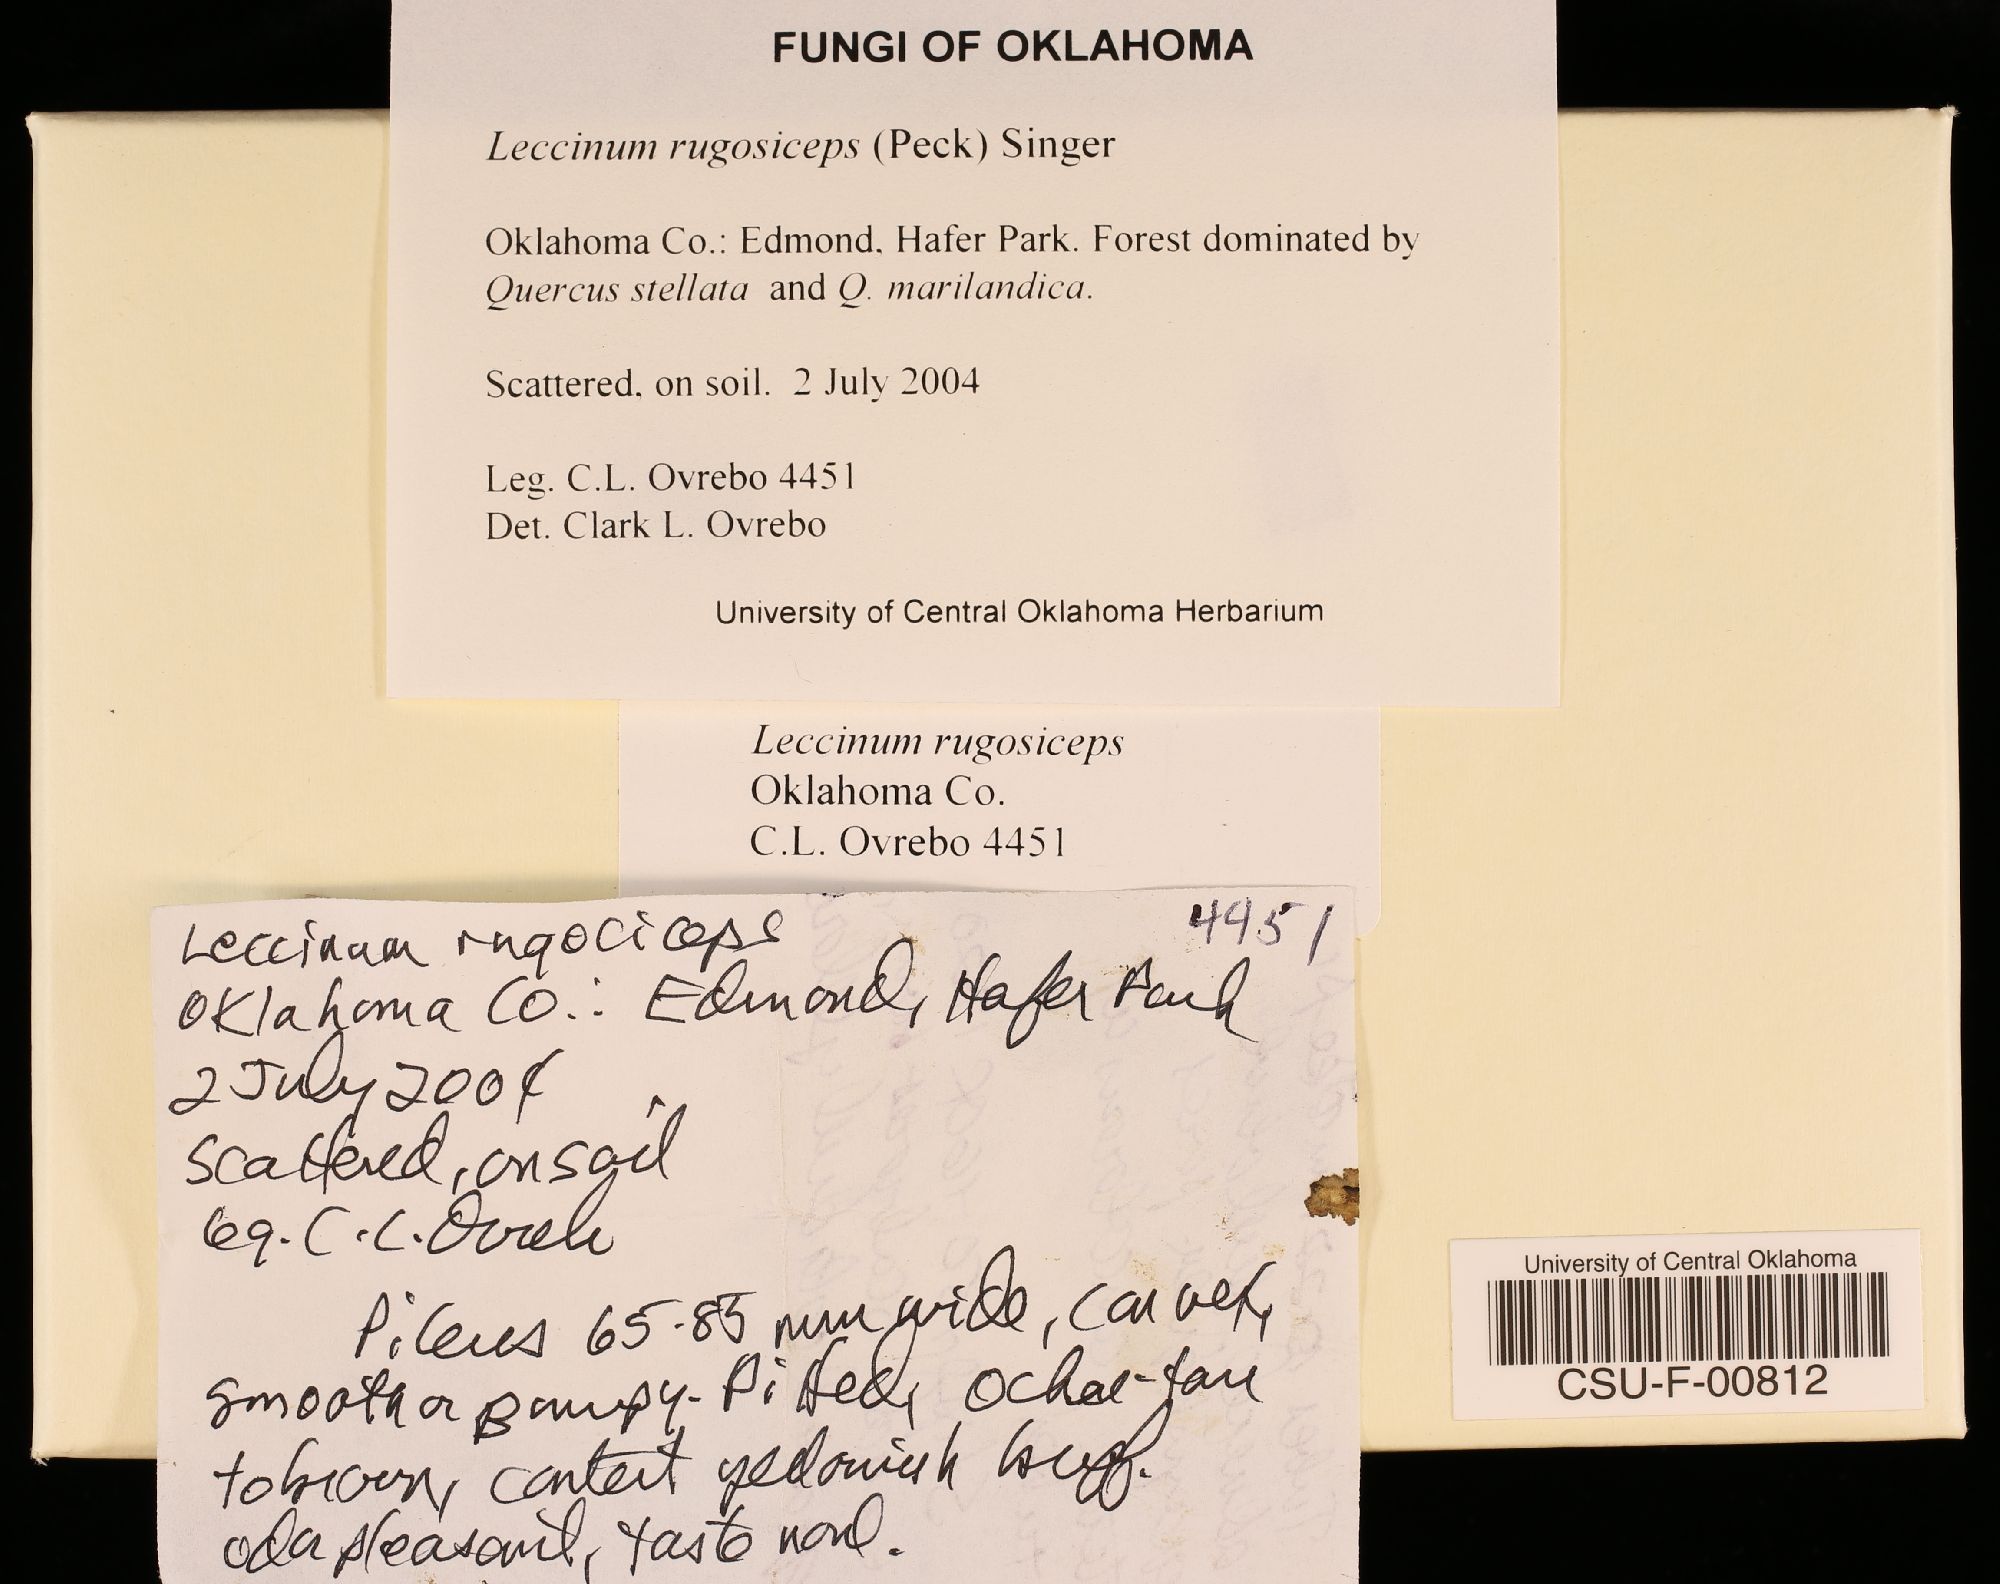 FUNGI OF OKLAHOMA
Leccinum rugosiceps (Peck) Singer
Oklahoma Co.: Edmond, Hafer Park. Forest dominated by
Quercus stellata and Q. marilandica.
Scattered, on soil. 2 July 2004
Leg. C.L. Ovrebo 4451
Det. Clark L. Ovrebo
University of Central Oklahoma Herbarium
Leccinum rugosiceps
Oklahoma Co.
C.L. Ovrebo 4451
4451
Leccinum rugociceps
Oklahoma Co.: Edmond, Hafer Park
2 July 2004
Scattered, on soil
leg. C.L. Ovrebo
Pileus 65-85 mm wide, convex,
smooth or bumpy-pitted, ochre-tan
to brown, context yellowish buff.
odor pleasant, taste none.
University of Central Oklahoma
CSU-F-00812